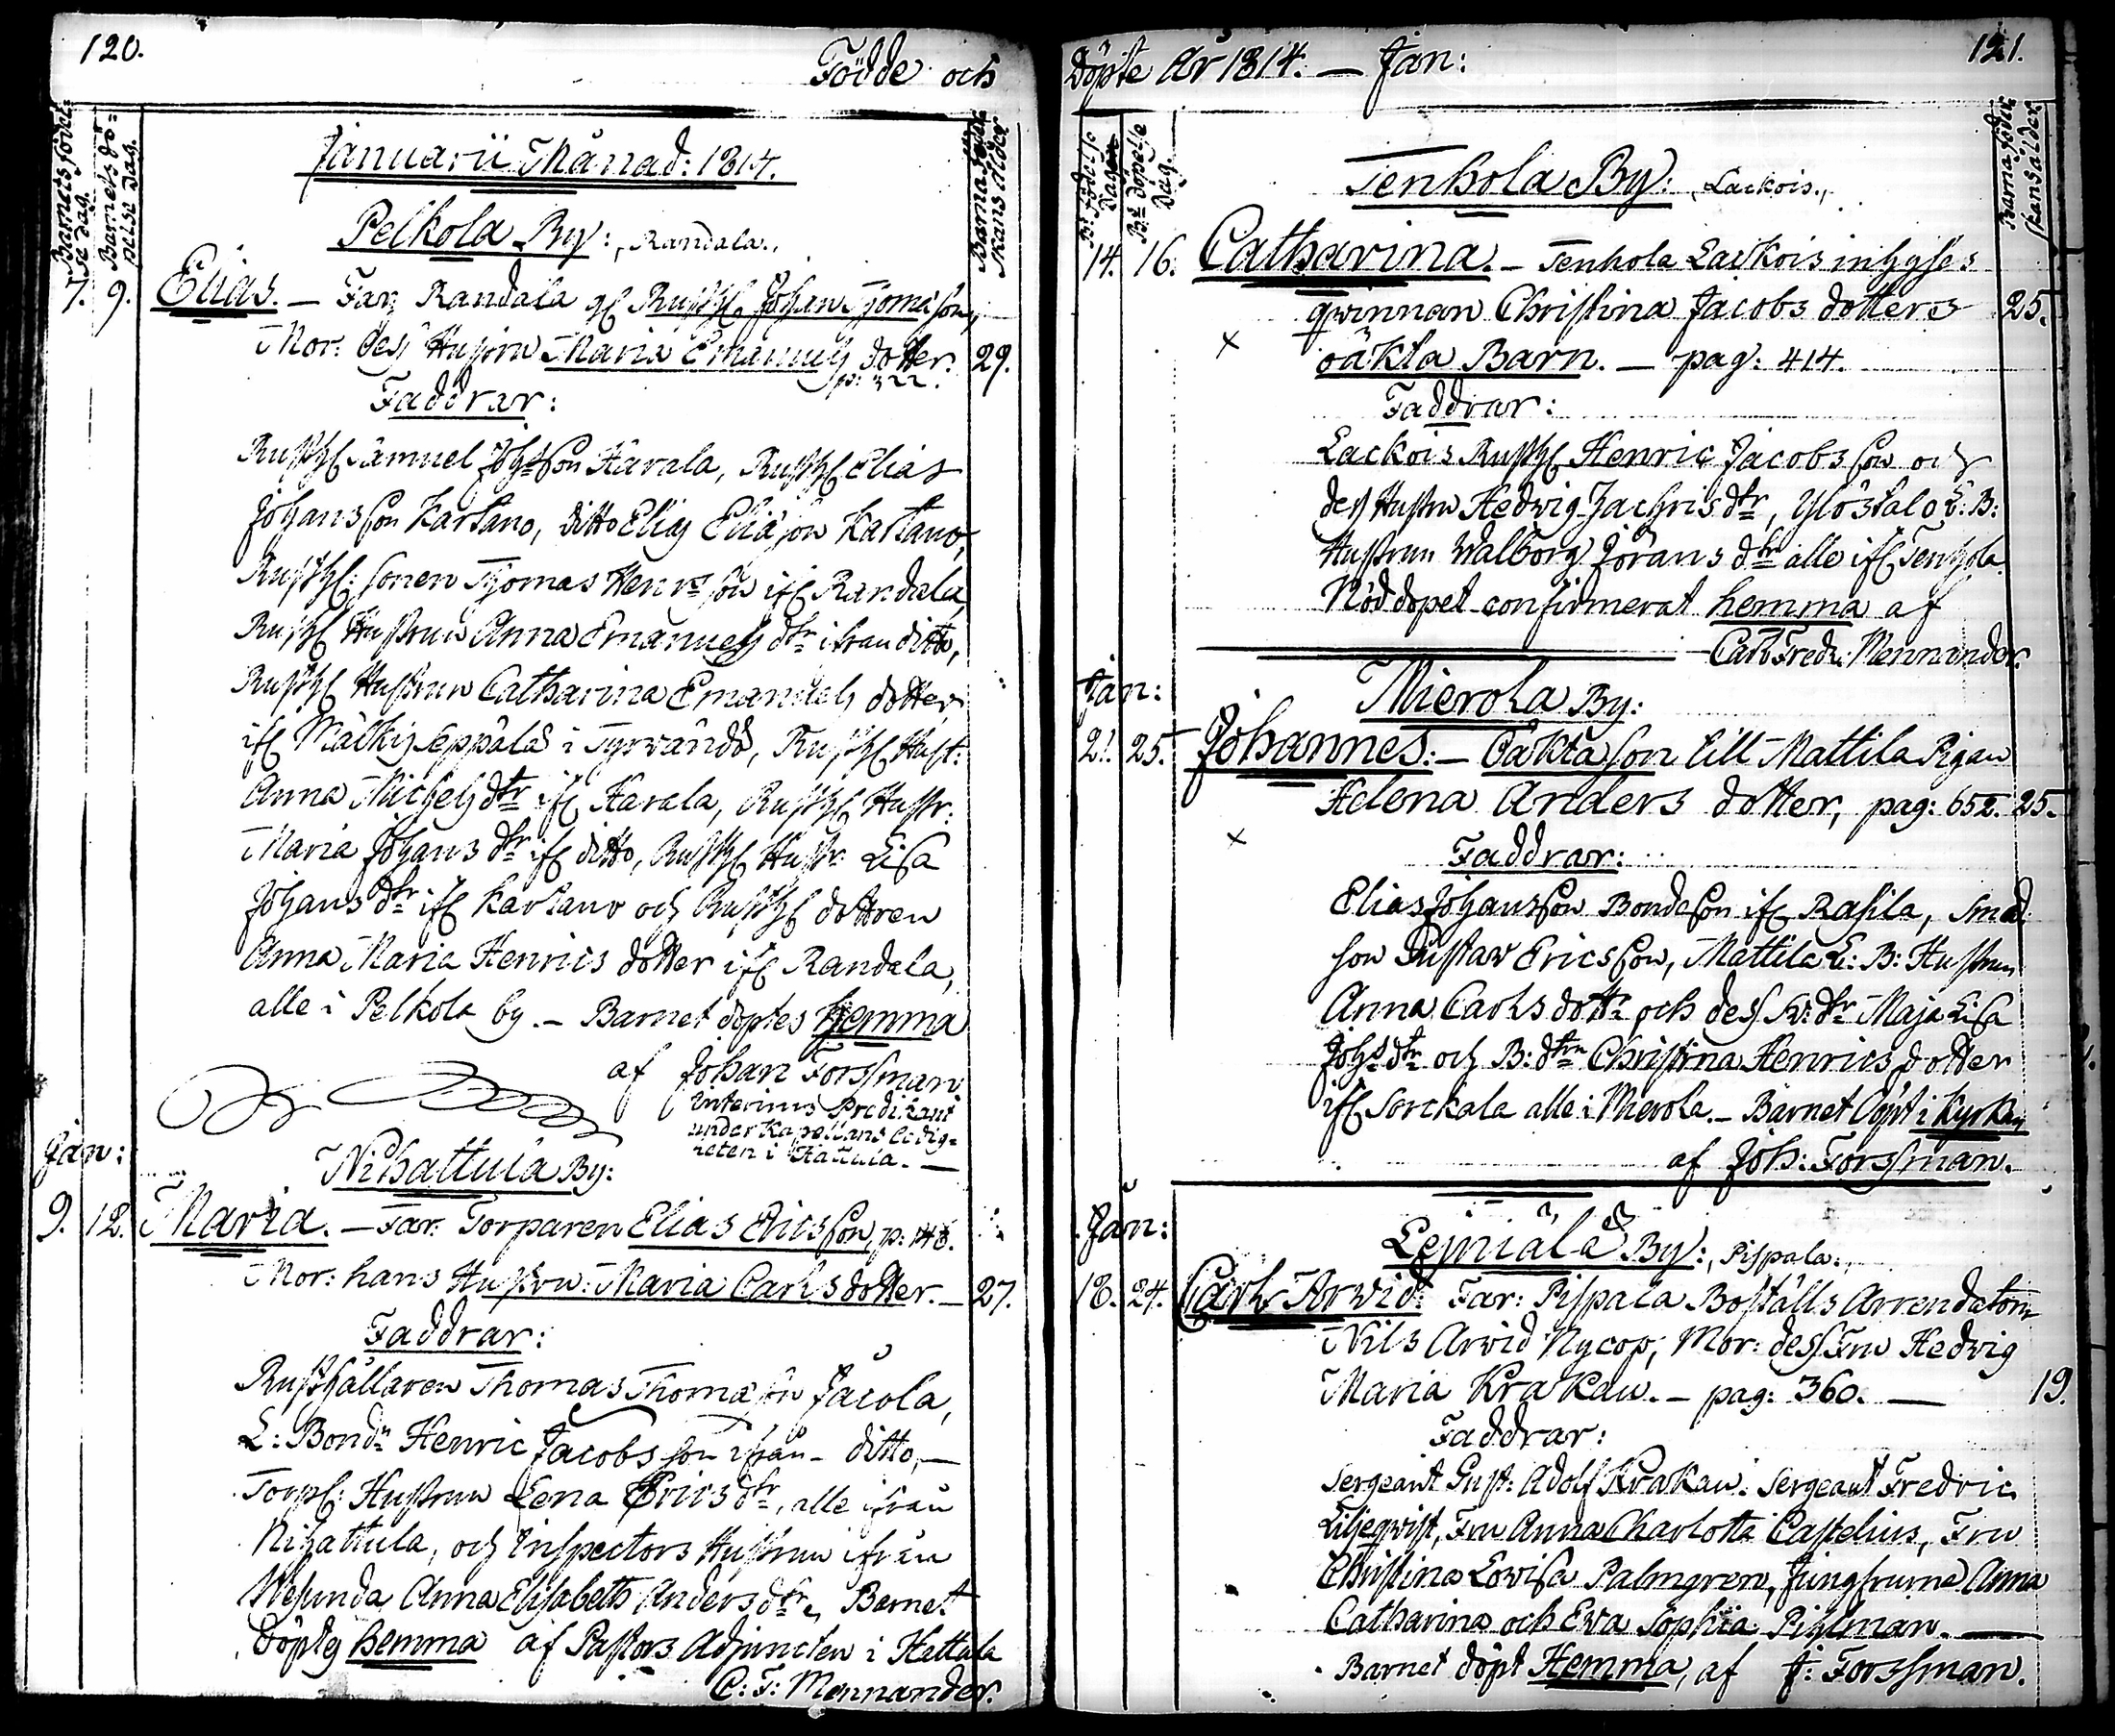 120.
Födde och
Barnets födel-
se dag.
Barnets dö-
pelse dag.
Barnaföder-
skans ålder
Januarii Månad: 1814.
Pelkola By:, Randala.,
7. 9. Elias. — Far, Randala Rusth. Johan Thomason,
Mor: dess Hustru Maria Emanuels dotter. 29.
p: 322.
Faddrar:
Rusth. Samuel Joh:sson Harala, Rusth. Elias
Johansson Kartano, ditto Elias Eliæson Kartano,
Rusth: sonen Thomas Henr:sson ifr. Randala,
Rusth. Hustrun Anna Emanuels dtr ifrån ditto,
Rusth. Hustrun Catharina Emanuels dotter
ifr. Seppälä i Tyrvändö, Rusth. Hust:
Anna Michels dtr ifr. Harala, Rusth. Hustr:
Maria Johans dtr ifr. ditto, Rusth. Hustr: Lisa
Johans dtr ifr. Kartano och Rusth. dottren
Anna Maria Henrics dotter ifr. Randala,
alle i Pelkola by. — Barnet döptes hemma
af Johan Forssman
Interims Predikant
under Kapellans ledig-
heten i Hattula. —
Jan:
Nihattula By:
9. 12. Maria. — Far: Torparen Elias Ericsson, p:
Mor: hans Hustru: Maria Carlsdotter. — 27.
Faddrar:
Rusthållaren Thomas Thomasson Jacola,
L: Bond: Henric Jacobsson ifrån — ditto, —
Torp: Hustrun Lena Erics dtr, alle ifrån
Nihattula, och Inspectors Hustrun ifrån
Wesunda Anna Elisabeth Anders dtr, Barnet
döptes hemma af Pastors Adjuncten i Hattula
C: F: Mennander.
döpte År 1814. — Jan:
121.
B:s födelse
Dagen
B:ts döpelse
Dag.
Barnaföder-
skans ålder
Tenhola By:, Lackois.,
14. 16. Catharina. — Tenhola Lackois inhyses
qwinnan Christina Jacobs dotters 25.
× oäkta Barn. — pag: 414.
Faddrar:
Lackois Rusth. Henric Jacobsson och
dess Hustru Hedwig Zachris dtr, Ylöstalo L: B:
Hustrun Walborg Jörans dtr alle ifr. Tenhola
Nöddopet confirmerat hemma af
Carl Fredr: Mennander.
Jan:
Mierola By:
21. 25. Johannes: — Oäkta son till Mattila Pigan
Helena Anders dotter, pag: 652. 25.
×
Faddrar:
Elias Johansson Bondeson ifr. Rasila,
son Gustav Ericsson, Mattila L: B: Hustrun
Anna Carlsdottr och dess Maja Lisa
Joh:dtr och B: dtrn Christina Henrics dotter
ifr. Sorckala alle i Mierola. — Barnet döpt i Kyrkan
af Joh: Forssman.
Jan:
Leiniälä By:, Pispala:,
18. 24. Carl Arwid. Far: Pispala Boställs Arrendatorn
Nils Arvid Nycop, Mor: dess Fru Hedvig
Maria Krakau. — pag: 360. — 19.
Faddrar:
Sergeant Gust: Adolf Krakau. Sergeant Fredric
Liljeqvist, Fru Anna Charlotta Castelius, Fru
Christina Lovisa Palmgren, Jungfrurne Anna
Catharina och Eva Sophia Pihlman. —
Barnet döpt Hemma, af J: Forssman.